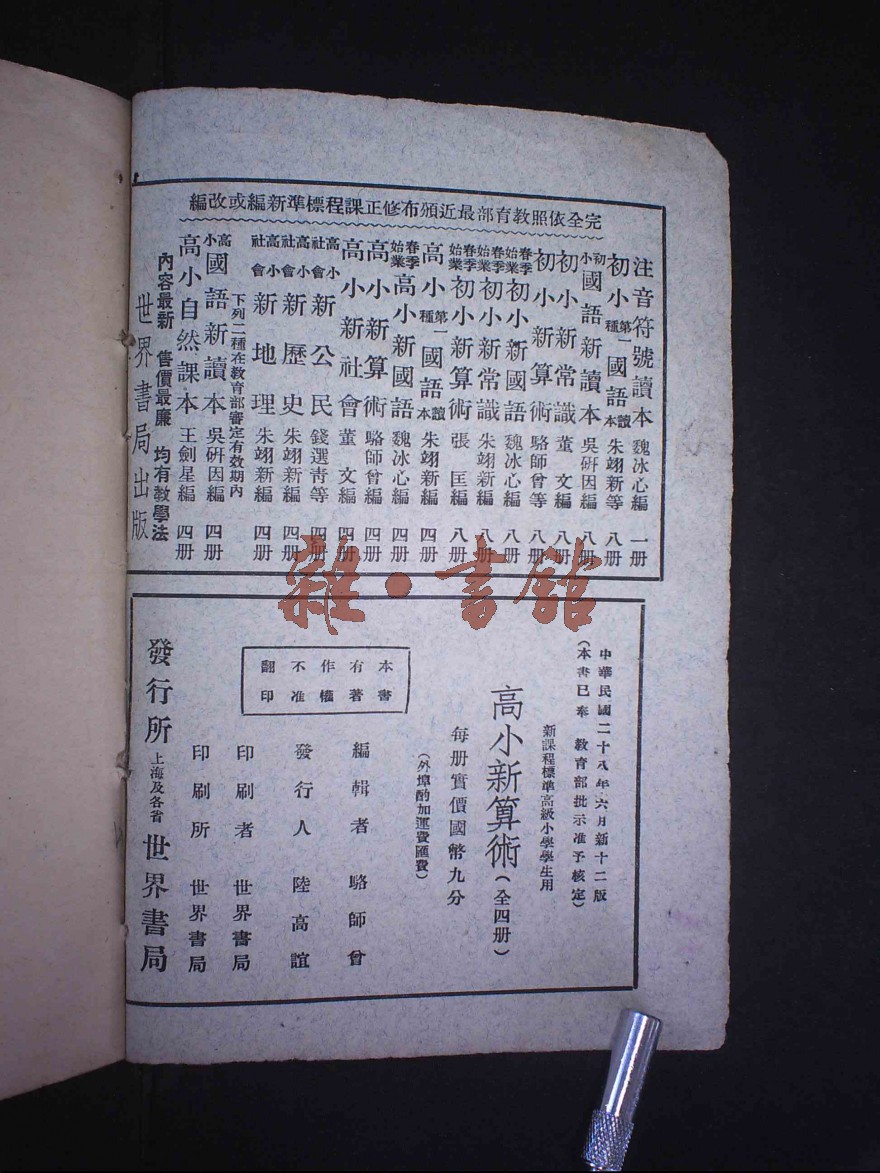 完全依照教育部最近頒布修正課程標準新編或改編
注音符號讀本 魏冰心編 一册
初小第一種國語讀本 朱翊新等 八册
初小國語新讀本 吳研因編 八册
初小新常識 董文編 八册
初小新算術 駱師曾等 八册
春季始業初小新國語 魏冰心編 八册
春季始業初小新常識 朱翊新編 八册
春季始業初小新算術 張匡編 八册
高小第一種國語讀本 朱翊新編 四册
春季始業高小新國語 魏冰心編 四册
高小新算術 駱師曾編 四册
高小新社會 董文編 四册
高小社會新公民 錢選青等 四册
高小社會新歷史 朱翊新編 四册
高小社會新地理 朱翊新編 四册
下列二種在教育部審定有效期內
高小國語新讀本 吳研因編 四册
高小自然課本 王劍星編 四册
內容最新 售價最廉 均有教學法
世界書局出版
雜·書館
中華民國二十八年六月新十二版
(本書已奉 教育部批示准予核定)
新課程標準高級小學學生用
高小新算術(全四册)
每册實價國幣九分
(外埠酌加運費匯費)
本書
有著
作權
不准
翻印
編輯者 駱師曾
發行人 陸高誼
印刷者 世界書局
印刷所 世界書局
發行所 上海及各省 世界書局